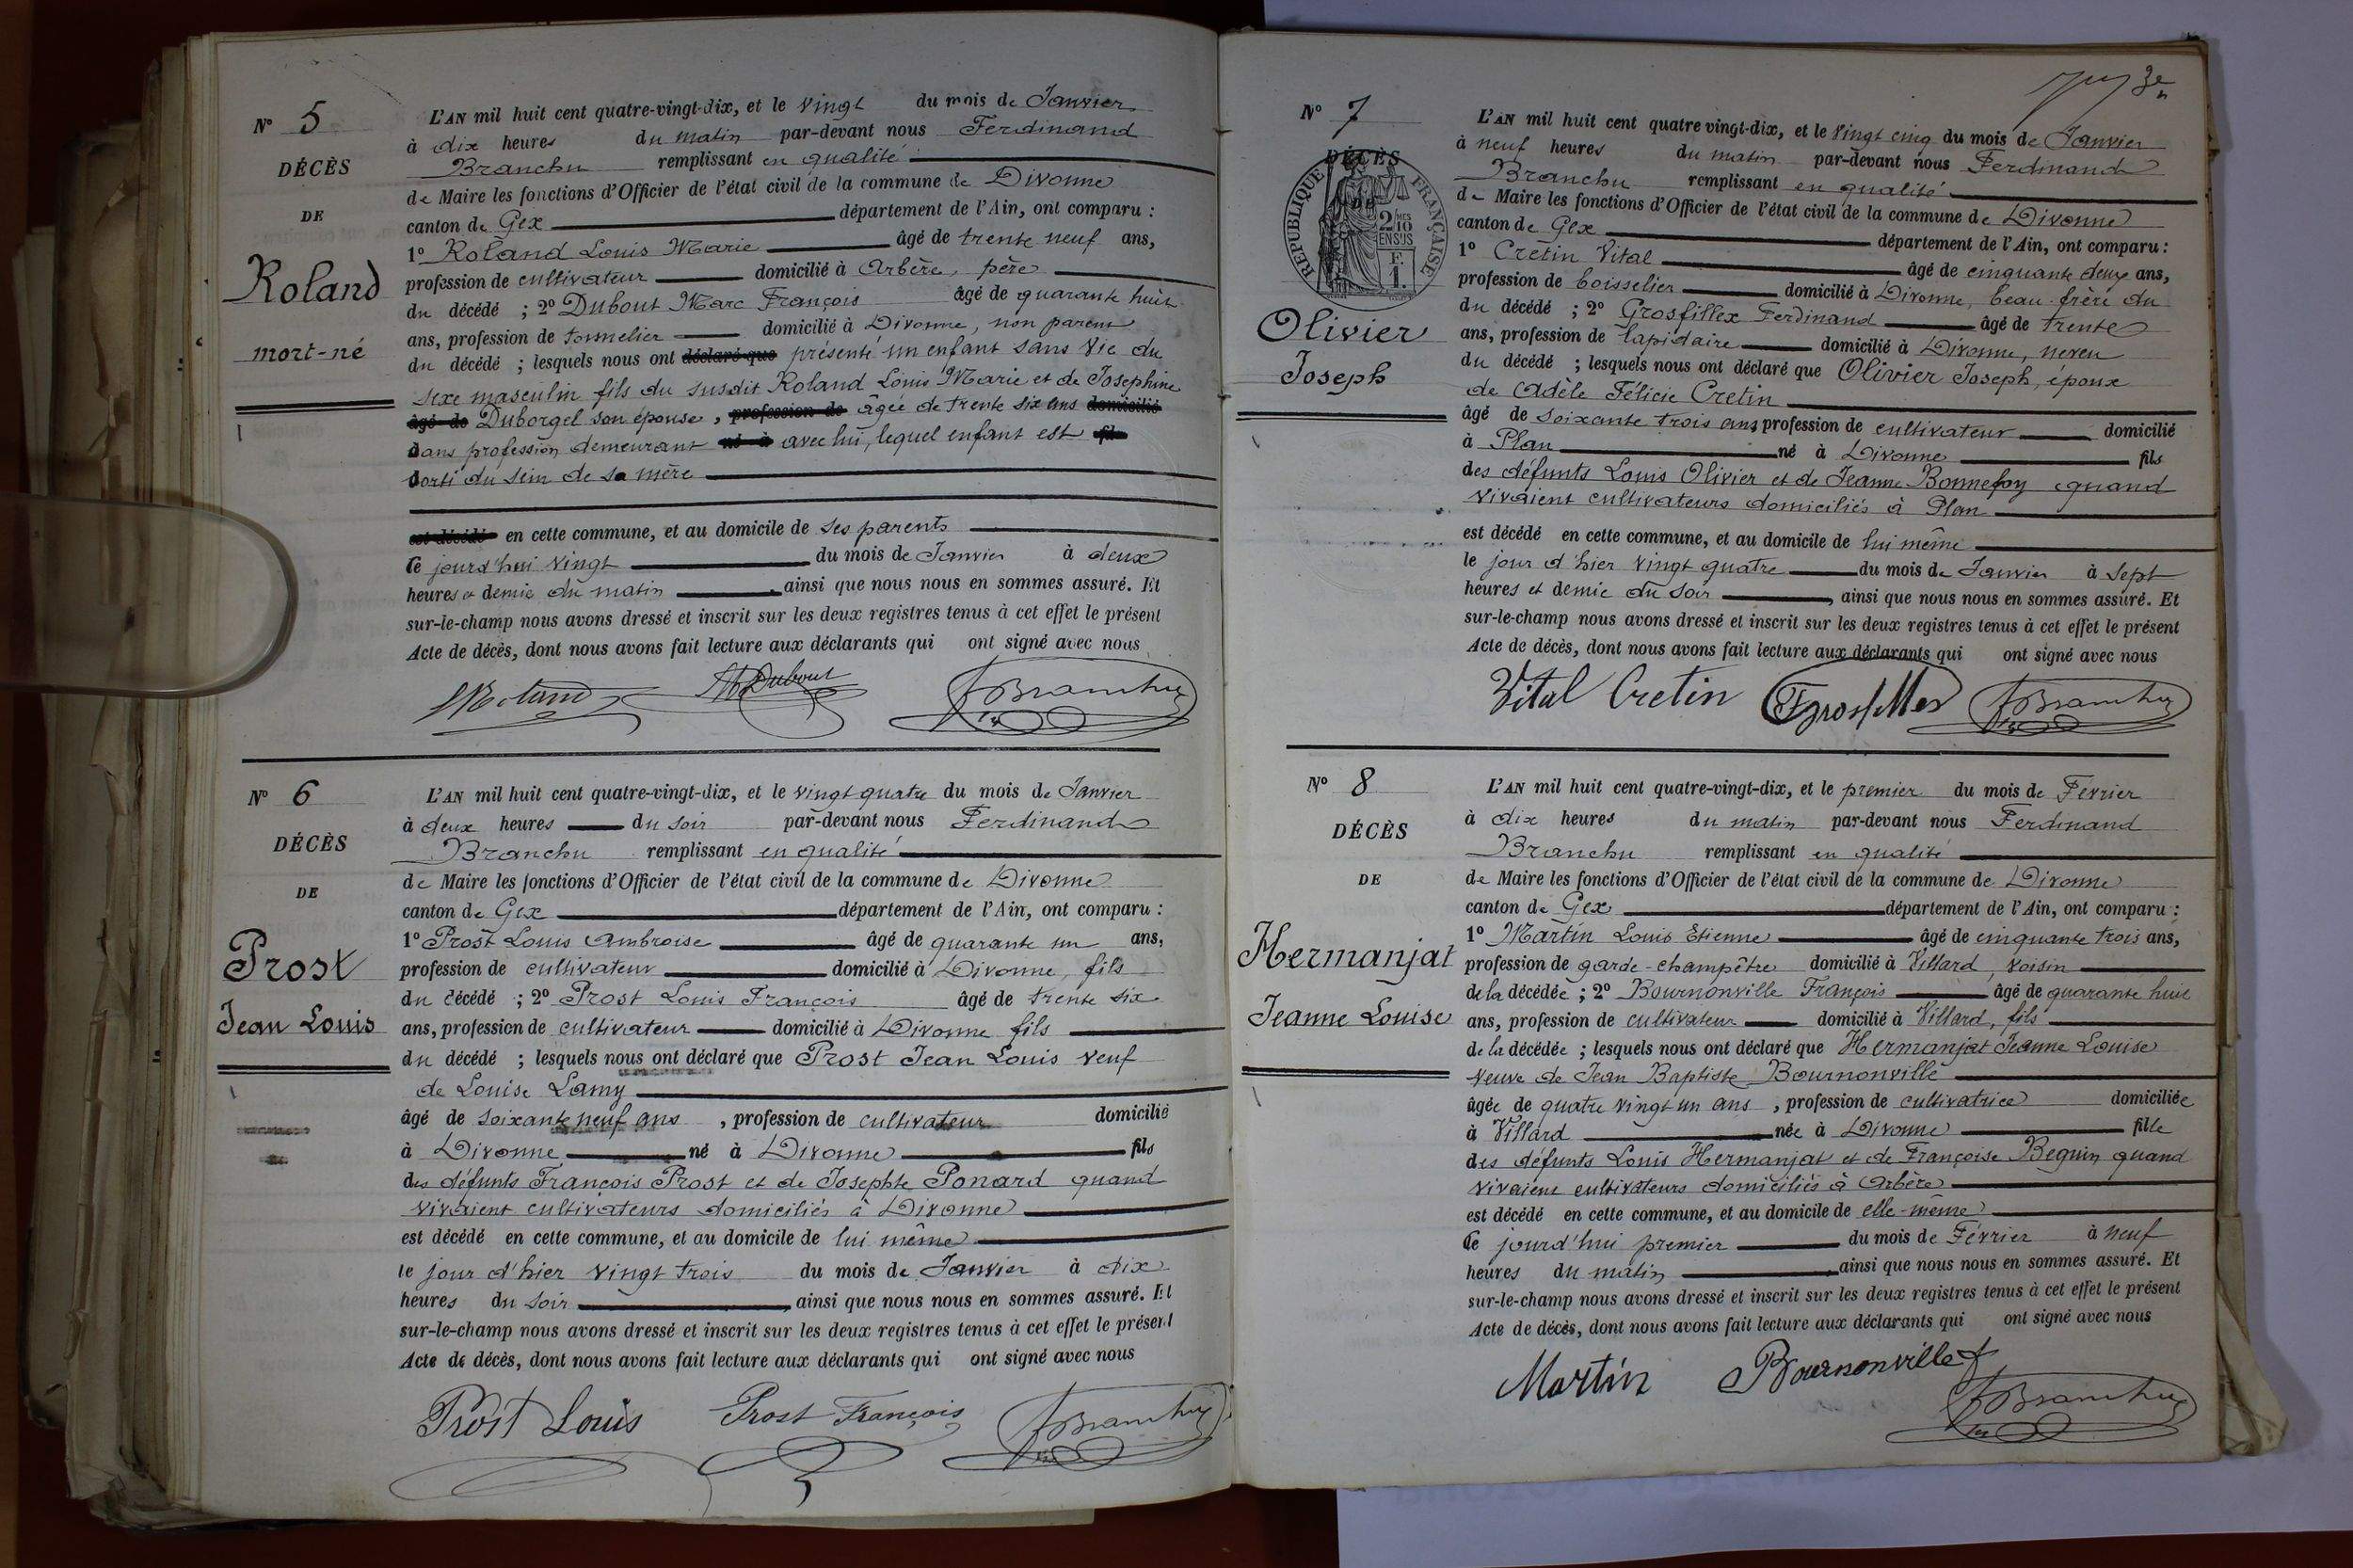 N° 5
DÉCÈS
DE
Roland
mort-né
L'AN mil huit cent quatre-vingt-dix, et le vingt du mois de Janvier
à dix heures du matin par-devant nous Ferdinand
Branchu remplissant en qualité
de Maire les fonctions d'Officier de l'état civil de la commune de Divonne
canton de Gex département de l'Ain, ont comparu :
1° Roland Louis Marie âgé de trente neuf ans,
profession de cultivateur domicilié à Arbère, père
du décédé ; 2° Dubout Marc François âgé de quarante huit
ans, profession de tonnelier domicilié à Divonne, non parent
du décédé ; lesquels nous ont déclaré que présenté un enfant sans vie du
sexe masculin fils du susdit Roland Louis Marie et de Josephine
âgé de Duborgel son épouse, profession de âgée de trente six ans domicilié
sans profession demeurant né à avec lui, lequel enfant est fils
sorti du sein de sa mère
est décédé en cette commune, et au domicile de ses parents
ce jourd'hui vingt du mois de Janvier à deux
heures et demie du matin ainsi que nous nous en sommes assuré. Et
sur-le-champ nous avons dressé et inscrit sur les deux registres tenus à cet effet le présent
Acte de décès, dont nous avons fait lecture aux déclarants qui ont signé avec nous
Roland Dubout Branchu
N° 6
DÉCÈS
DE
Prost
Jean Louis
L'AN mil huit cent quatre-vingt-dix, et le vingt quatre du mois de Janvier
à deux heures du soir par-devant nous Ferdinand
Branchu remplissant en qualité
de Maire les fonctions d'Officier de l'état civil de la commune de Divonne
canton de Gex département de l'Ain, ont comparu :
1° Prost Louis Ambroise âgé de quarante un ans,
profession de cultivateur domicilié à Divonne, fils
du décédé ; 2° Prost Louis François âgé de trente six
ans, profession de cultivateur domicilié à Divonne fils
du décédé ; lesquels nous ont déclaré que Prost Jean Louis veuf
de Louise Lamy
âgé de soixante neuf ans , profession de cultivateur domicilié
à Divonne né à Divonne fils
des défunts François Prost et de Josephte Ponard quand
vivaient cultivateurs domiciliés à Divonne
est décédé en cette commune, et au domicile de lui même
le jour d'hier vingt trois du mois de Janvier à dix
heures du soir ainsi que nous nous en sommes assuré. Et
sur-le-champ nous avons dressé et inscrit sur les deux registres tenus à cet effet le présent
Acte de décès, dont nous avons fait lecture aux déclarants qui ont signé avec nous
Prost Louis Prost François Branchu
3e
N° 7
DÉCÈS
DE
RÉPUBLIQUE FRANÇAISE
2/10 MES
EN SUS
F.
1.
Olivier
Joseph
L'AN mil huit cent quatre vingt-dix, et le vingt cinq du mois de Janvier
à neuf heures du matin par-devant nous Ferdinand
Branchu remplissant en qualité
de Maire les fonctions d'Officier de l'état civil de la commune de Divonne
canton de Gex département de l'Ain, ont comparu :
1° Crétin Vital âgé de cinquante deux ans,
profession de boisselier domicilié à Divonne, beau-frère du
du décédé ; 2° Grosfillex Ferdinand âgé de trente
ans, profession de lapidaire domicilié à Divonne, neveu
du décédé ; lesquels nous ont déclaré que Olivier Joseph, époux
de Adèle Félicie Cretin
âgé de soixante trois ans profession de cultivateur domicilié
à Plan né à Divonne fils
des défunts Louis Olivier et de Jeanne Bonnefoy quand
vivaient cultivateurs domiciliés à Plan
est décédé en cette commune, et au domicile de lui même
le jour d'hier vingt quatre du mois de Janvier à sept
heures et demie du soir , ainsi que nous nous en sommes assuré. Et
sur-le-champ nous avons dressé et inscrit sur les deux registres tenus à cet effet le présent
Acte de décès, dont nous avons fait lecture aux déclarants qui ont signé avec nous
Vital Cretin FGrosfillex Branchu
N° 8
DÉCÈS
DE
Hermanjat
Jeanne Louise
L'AN mil huit cent quatre-vingt-dix, et le premier du mois de Février
à dix heures du matin par-devant nous Ferdinand
Branchu remplissant en qualité
de Maire les fonctions d'Officier de l'état civil de la commune de Divonne
canton de Gex département de l'Ain, ont comparu :
1° Martin Louis Etienne âgé de cinquante trois ans,
profession de garde-champêtre domicilié à Villard, voisin
de la décédée ; 2° Bournonville François âgé de quarante huit
ans, profession de cultivateur domicilié à Villard, fils
de la décédée ; lesquels nous ont déclaré que Hermanjat Jeanne Louise
veuve de Jean Baptiste Bournonville
âgée de quatre vingt un ans , profession de cultivatrice domiciliée
à Villard née à Divonne fille
des défunts Louis Hermanjat et de Françoise Beguin quand
vivaient cultivateurs domiciliés à Arbère
est décédé en cette commune, et au domicile de elle-même
ce jourd'hui premier du mois de Février à neuf
heures du matin ainsi que nous nous en sommes assuré. Et
sur-le-champ nous avons dressé et inscrit sur les deux registres tenus à cet effet le présent
Acte de décès, dont nous avons fait lecture aux déclarants qui ont signé avec nous
Martin Bournonville f
Branchu